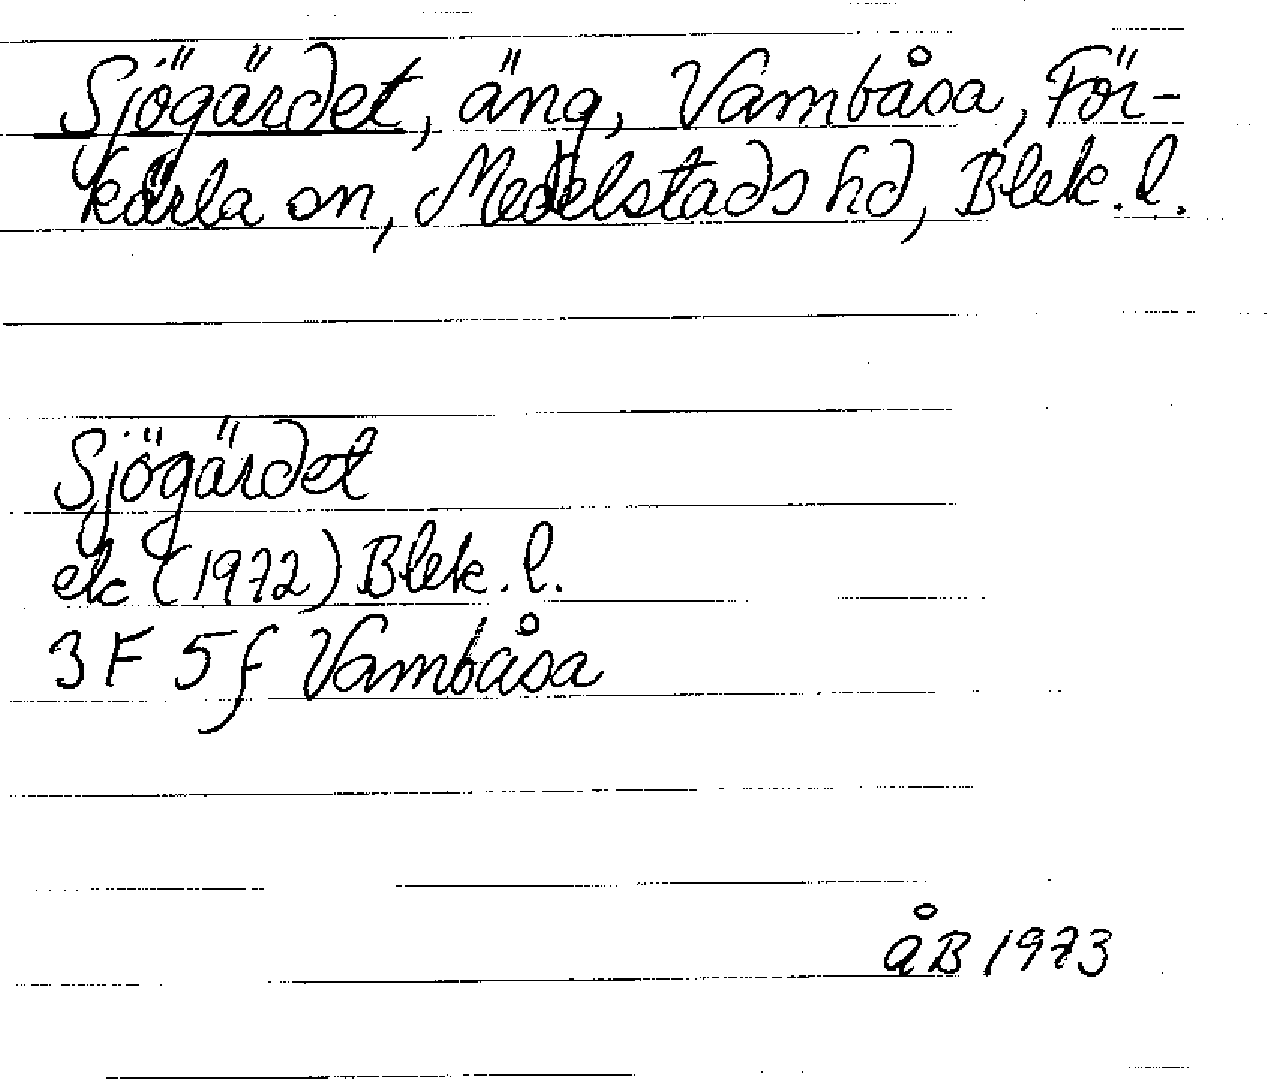 Sjögärdet, äng, Vambåsa, För-
kärla sn, Medelstads hd, Blek. l.
Sjögärdet
ek (1972) Blek. l.
3 F 5 f Vambåsa
åB 1973